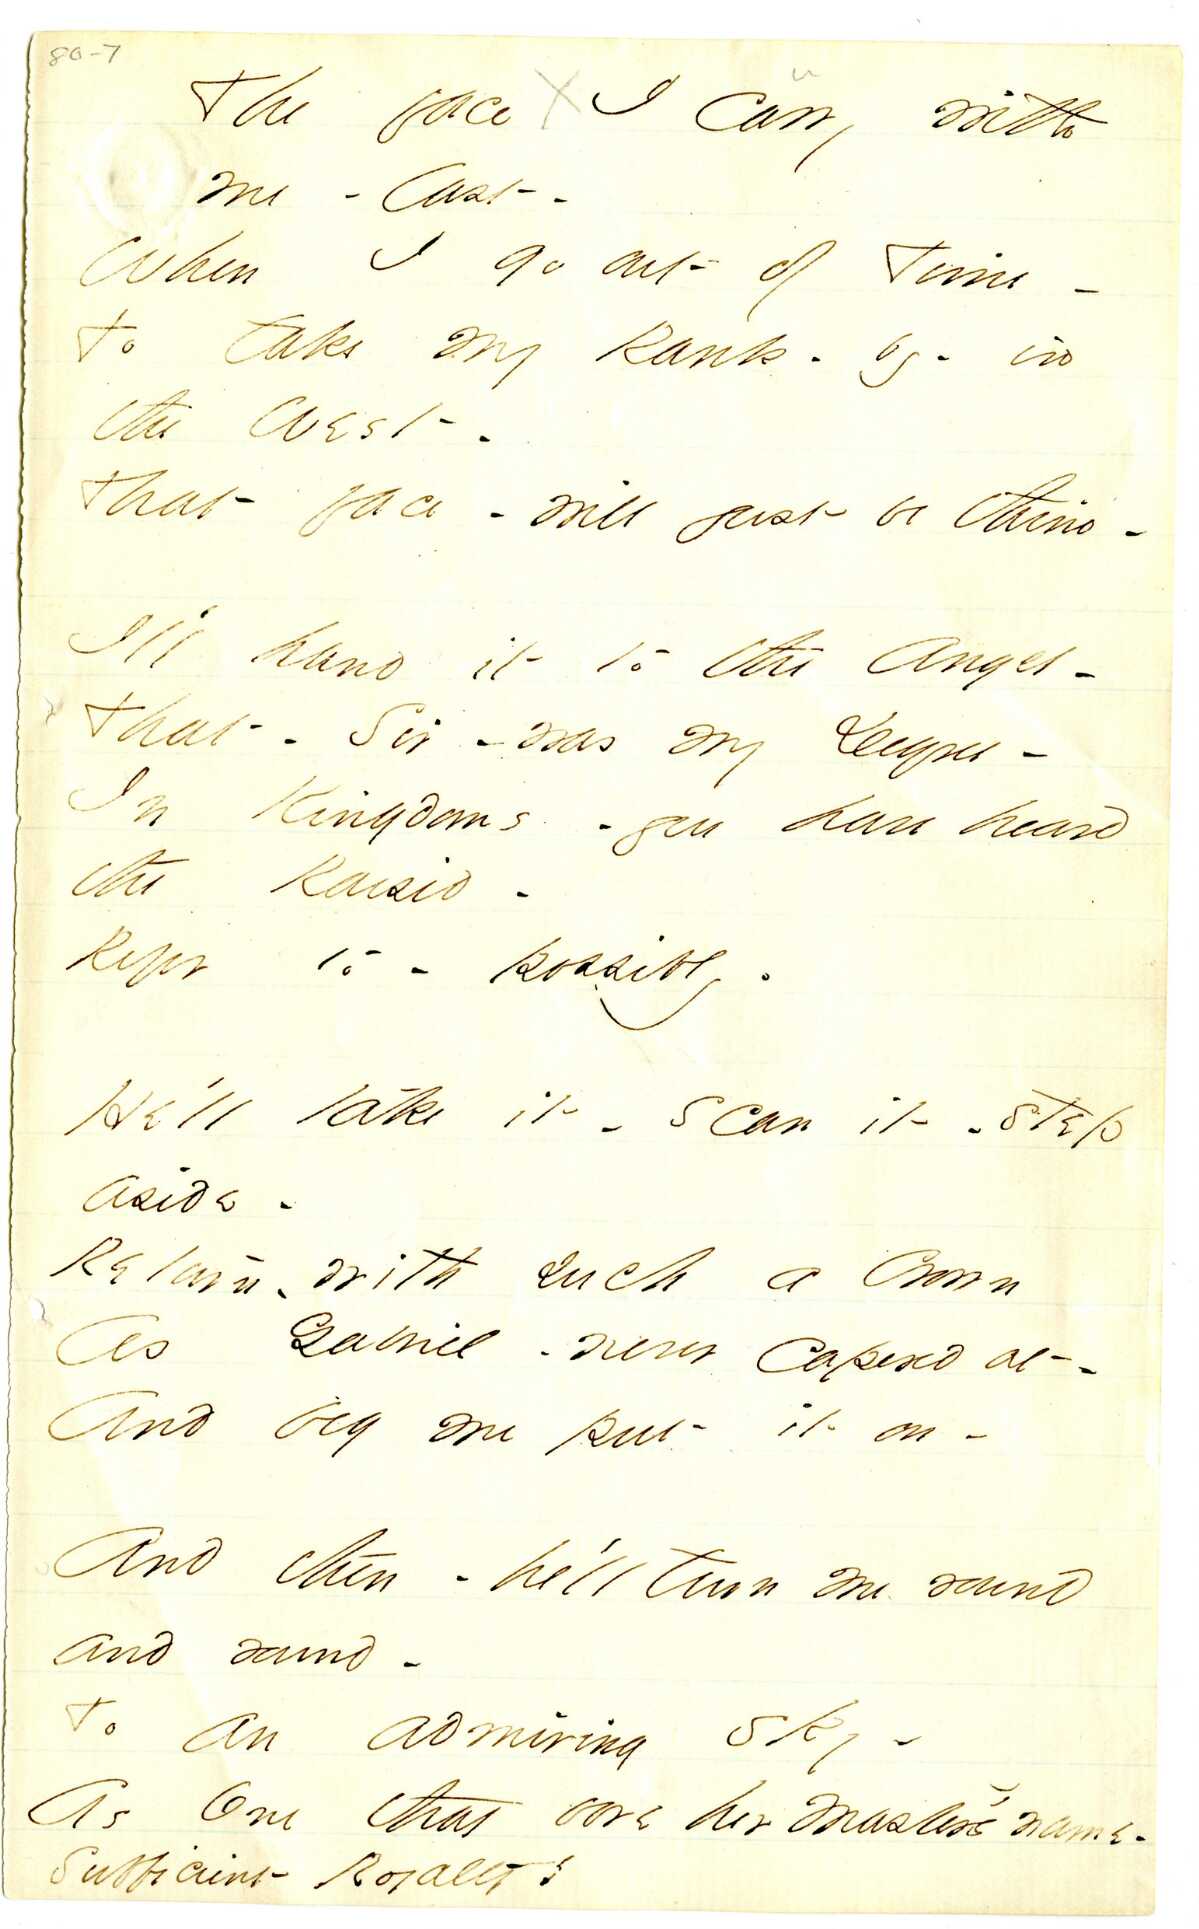 80-7
The face I carry with
me - last -
When I go out of Time -
To take my Rank - by - in
the West -
That face - will just be thine -
I'll hand it to the Angel -
That - Sir - was my Degree -
In Kingdoms - you have heard
the Raised -
Refer to - possibly.
He'll take it - scan it - step
aside -
Return - with such a Crown
As Gabriel - never capered at -
And beg me put it on -
And then - he'll turn me round
and round -
To an admiring sky -
As One that bore her Master's name -
Sufficient Royalty!